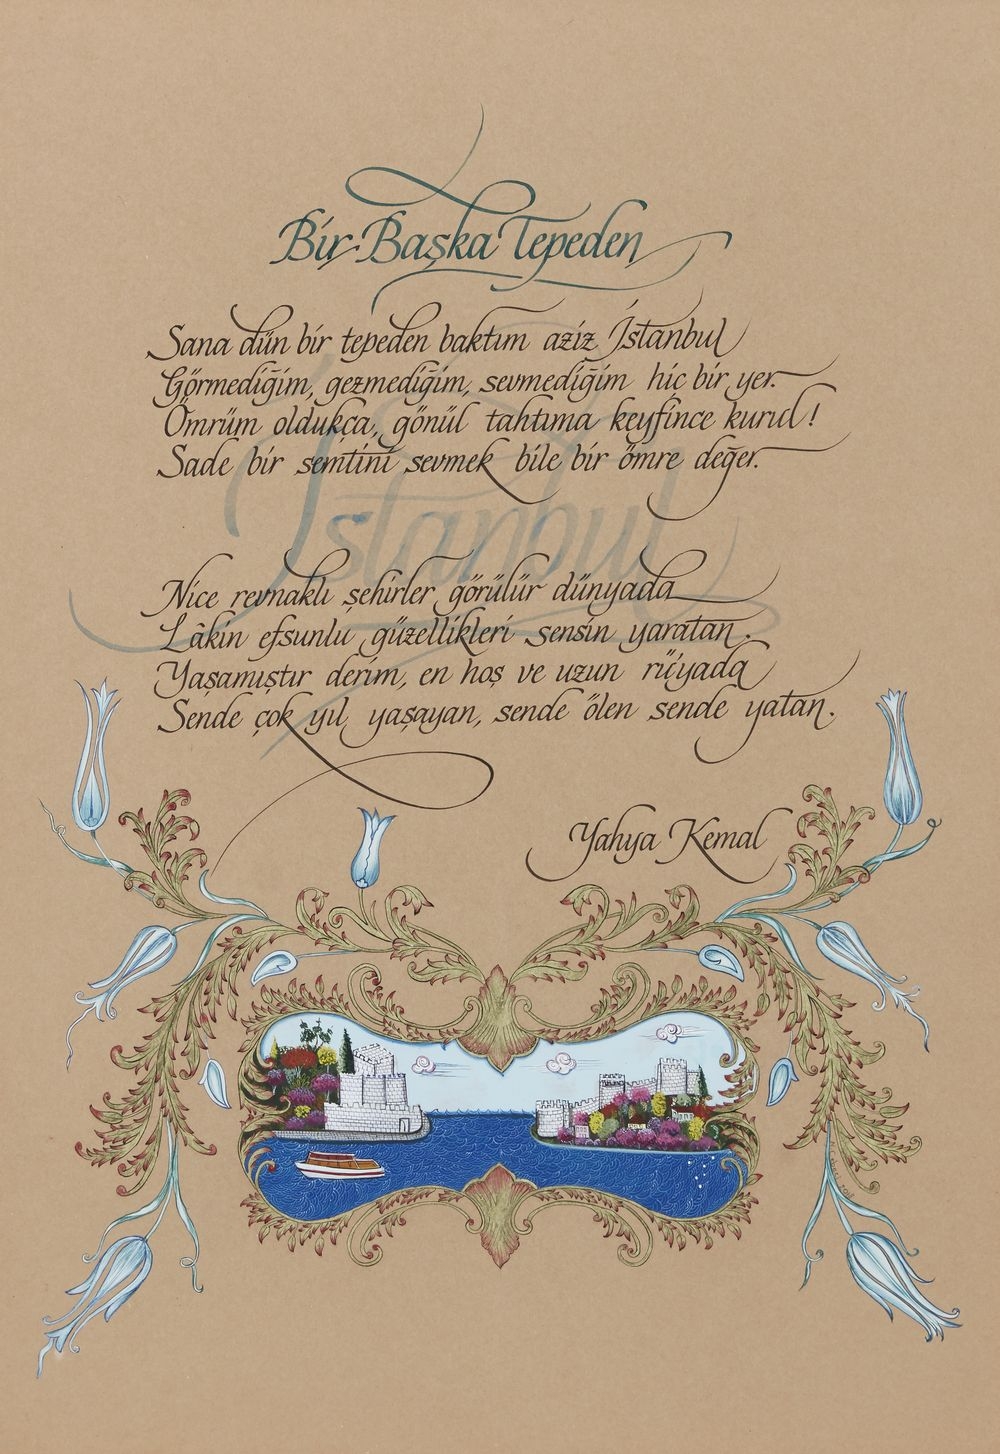 Bir Başka Tepeden
Sana dün bir tepeden baktım aziz İstanbul
Görmediğim, gezmediğim, sevmediğim hic bir yer.
Ömrüm oldukça, gönül tahtıma keyfince kurul!
Sade bir semtini sevmek bile bir ömre değer.
İstanbul
Nice revnaklı şehirler görülür dünyada
Lâkin efsunlu güzellikleri sensin yaratan.
Yaşamıştır derim, en hoş ve uzun rüyada
Sende çok yıl yaşayan, sende ölen sende yatan.
Yahya Kemal